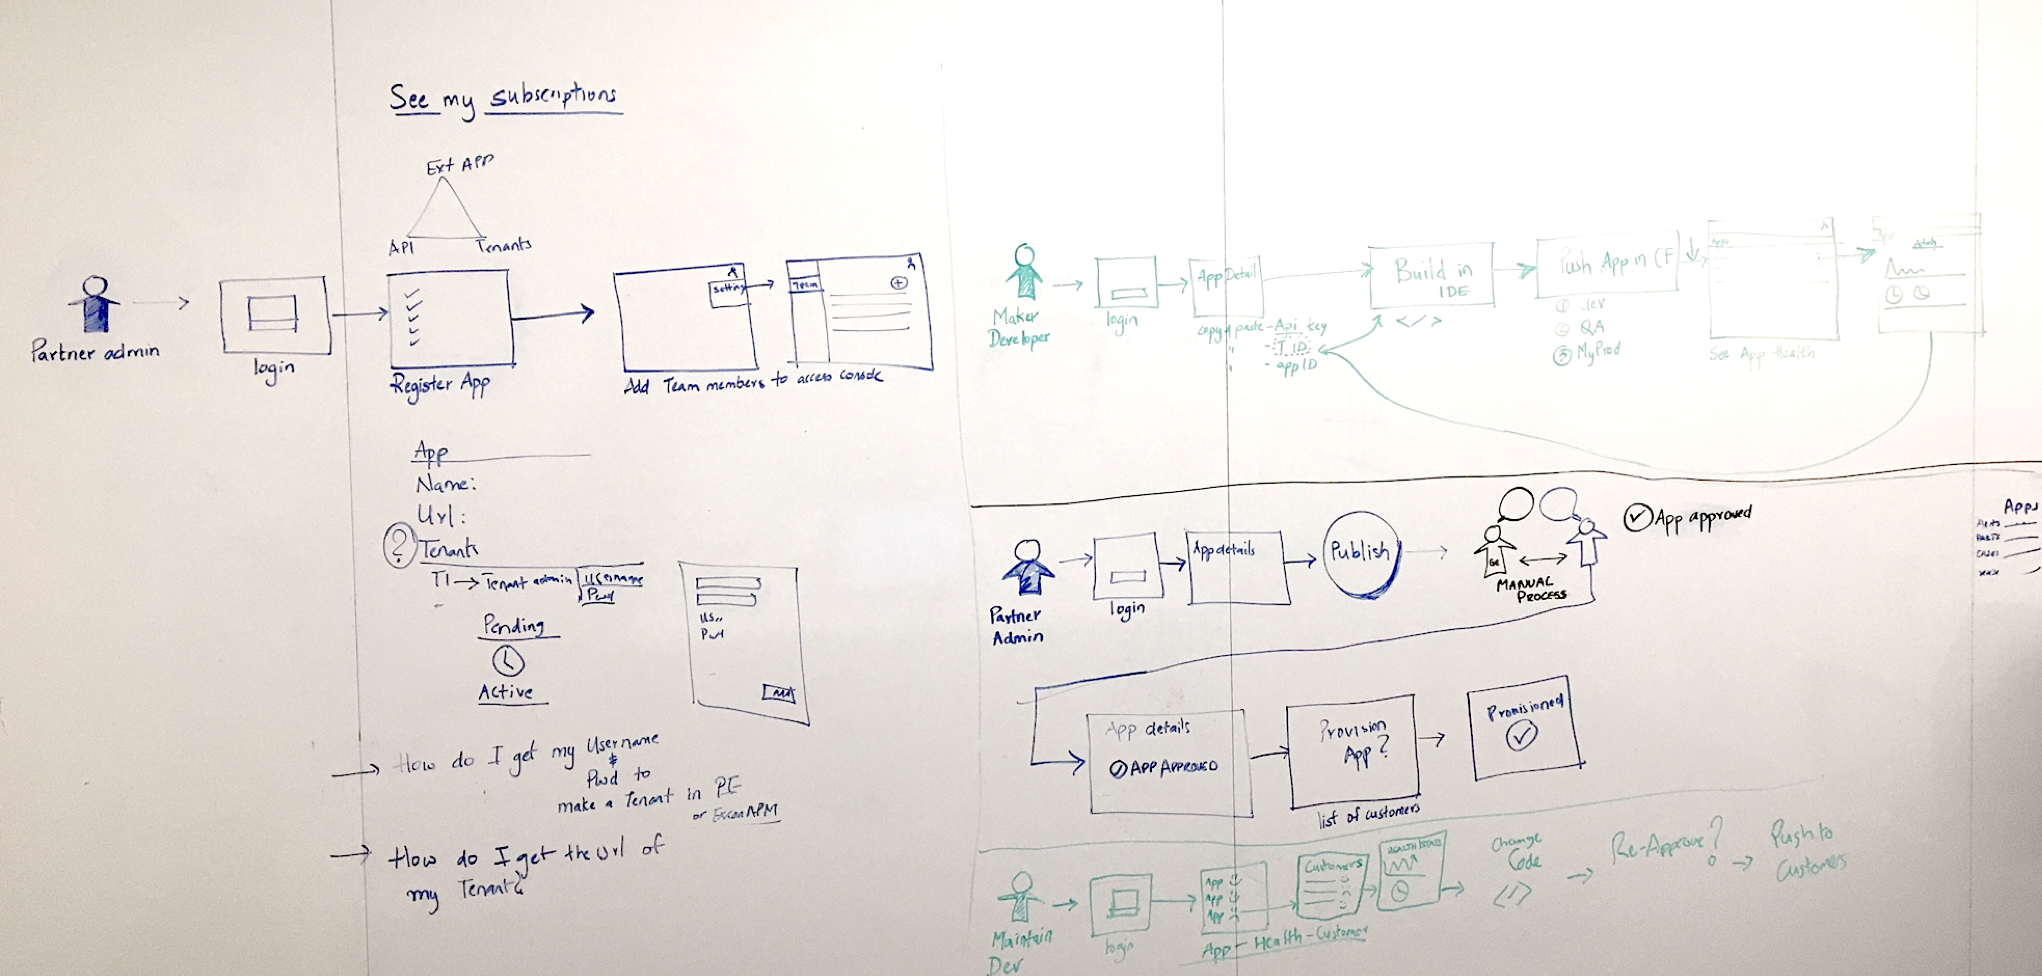 See my subscriptions
Ext APP
API
Tenants
Partner admin
login
Register App
Setting
Team
Add Team members to access console
App
Name:
Url:
?
Tenants
T1 → Tenant admin
Username
Pwd
Pending
Active
Us..
Pwd
Add
→ How do I get my Username
&
Pwd to
make a Tenant in PE
→ How do I get the url of
my Tenant?
Maker
Developer
login
App Detail
copy & paste - Api key
" - T ID
" - app ID
Build in
IDE
</>
Push App in CF
① dev
② QA
③ MyProd
Apps
See App Health
Partner
Admin
login
App details
Publish
GE
MANUAL
PROCESS
App approved
Apps
App details
APP APPROVED
Provision
App?
list of customers
Provisioned
Maintain
Dev
login
App
App
App
App - Health - Customer
Customers
HEALTH STATS
Change
Code
</>
Re-Approve?
Push to
Customers